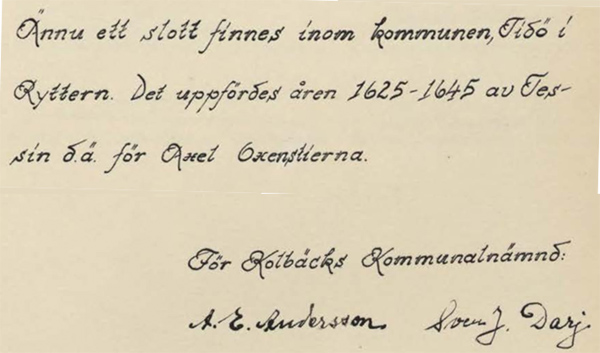 Ännu ett slott finnes inom kommunen, Tidö i
Ryttern. Det uppfördes åren 1625-1645 av Tes-
sin d.ä. för Axel Oxenstierna.
För Kolbäcks Kommunalnämnd:
A. E. Andersson Sven J. Darj